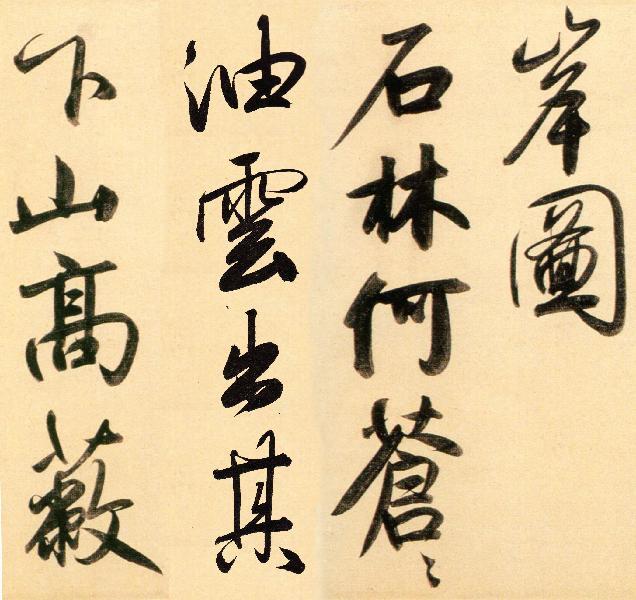 岸圖
石林何蒼〻
油雲出其
下山髙蔽